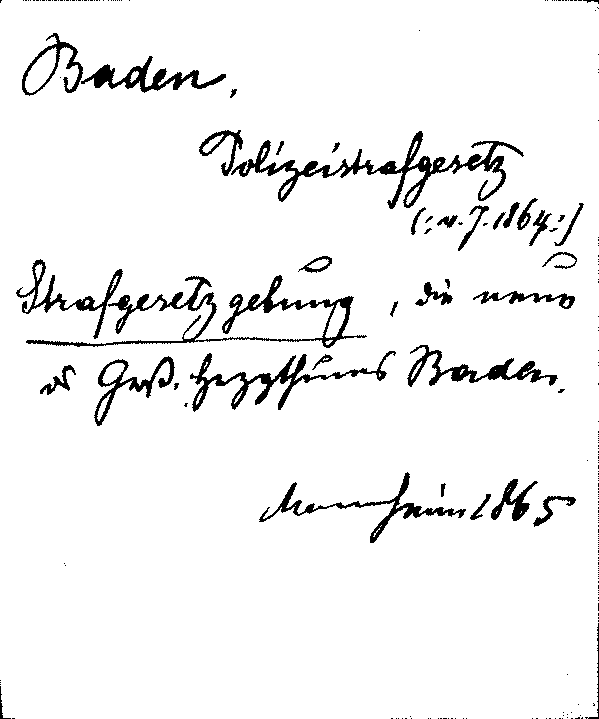 Baden.
Polizeistrafgesetz
(: v. J. 1864 :)
Strafgesetzgebung, die neue
ds Groß. Herzgthums Baden.
Mannheim 1865